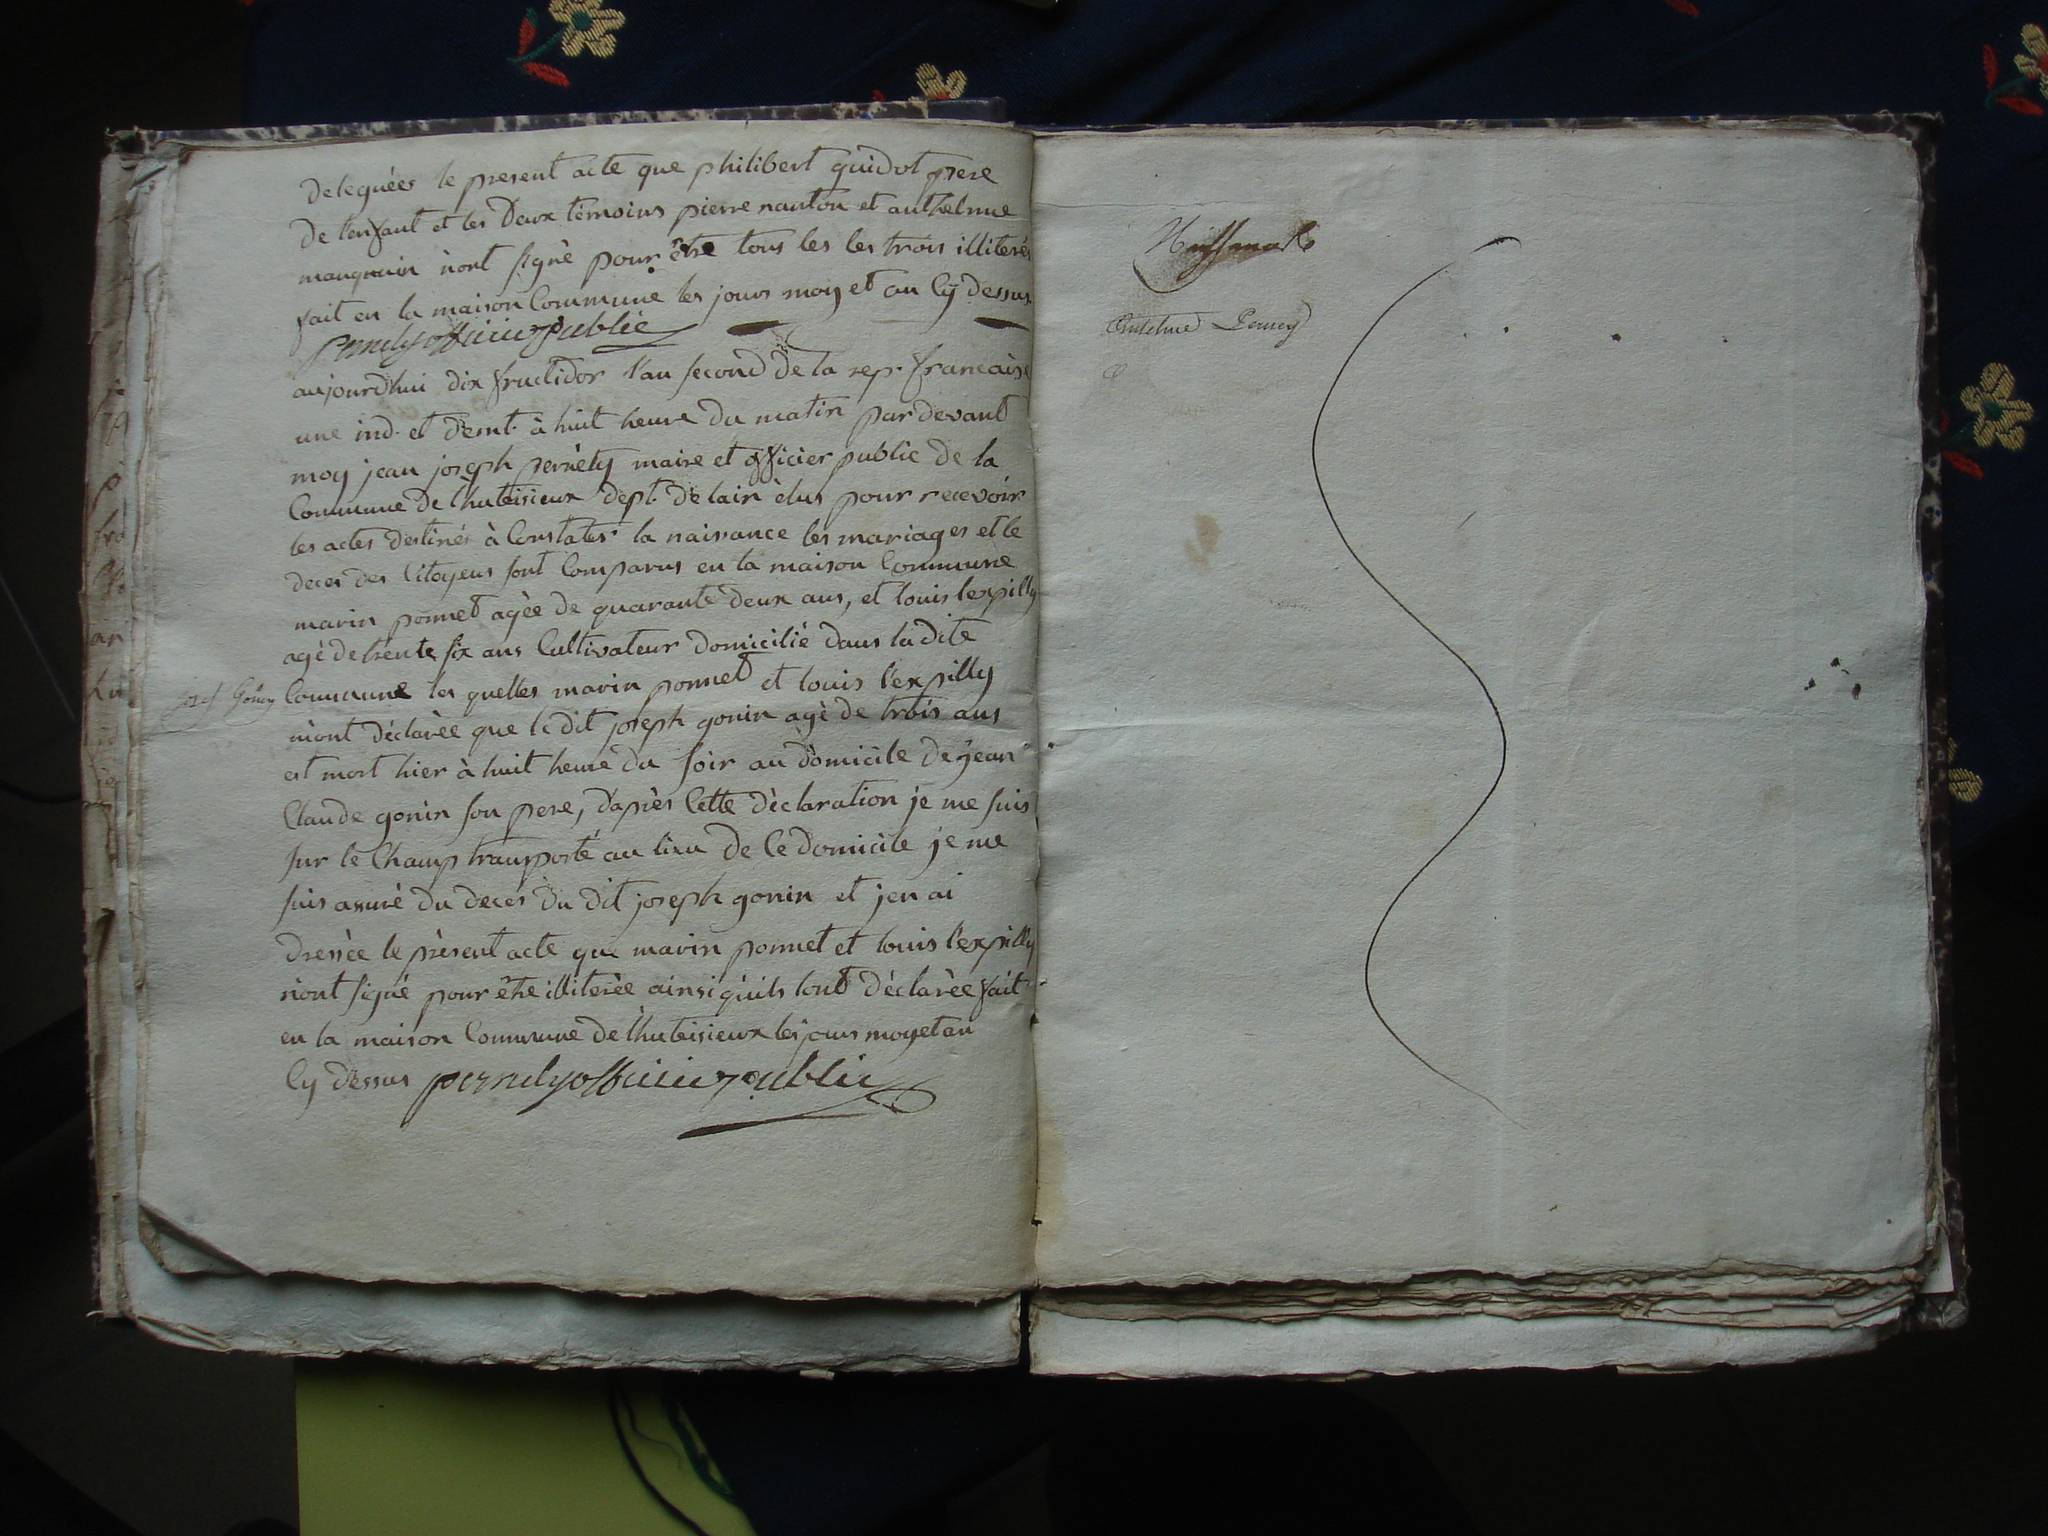 deleguées le present acte que philibert guidot pere
de l'enfant et les deux témoins pierre nanton et anthelme
mauguin n'ont signè pour être tous les les trois illiterés
fait en la maison Commune les jours moy et an Cy dessus
pernety officier public
aujourdhui dix fructidor l'an second de la rep. francaise
une ind. et demt. à huit heure du matin par devant
moy jean joseph pernèty maire et officier public de la
Commune de lhuteisieux dept. de lain èlus pour recevoir
les actes destinés à Constater la naissance les mariages et le
deces des Citoyens sont Comparus en la maison Commune
marin ponnet agèe de quarante deux ans, et louis lexpilly
agè de trente six ans Cultivateur domicilié dans la dite
Commune les quelles marin ponnet et louis l'expilly
m'ont dèclarèe que le dit joseph gonin agè de trois ans
est mort hier à huit heure du soir au domicile de jean
Claude gonin son pere, d'après Cette dèclaration je me suis
sur le Champ transporté au lieu de Ce domicile je me
suis assuré du decès du dit joseph gonin et jen ai
dressée le prèsent acte que marin ponnet et louis l'expilly
n'ont signé pour être illiterèe ainsi quils lont dèclarèe fait
en la maison Commune de lhuteisieux les jours moy et an
Cy dessus pernety officier public